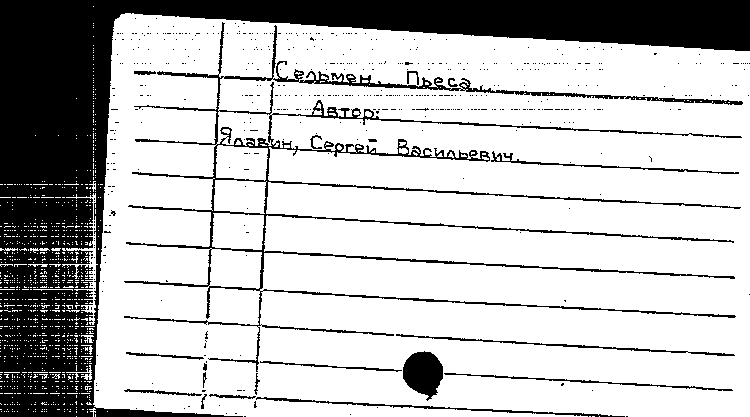 Сельмен. Пьеса..
Автор:
Ялавин, Сергей Васильевич.